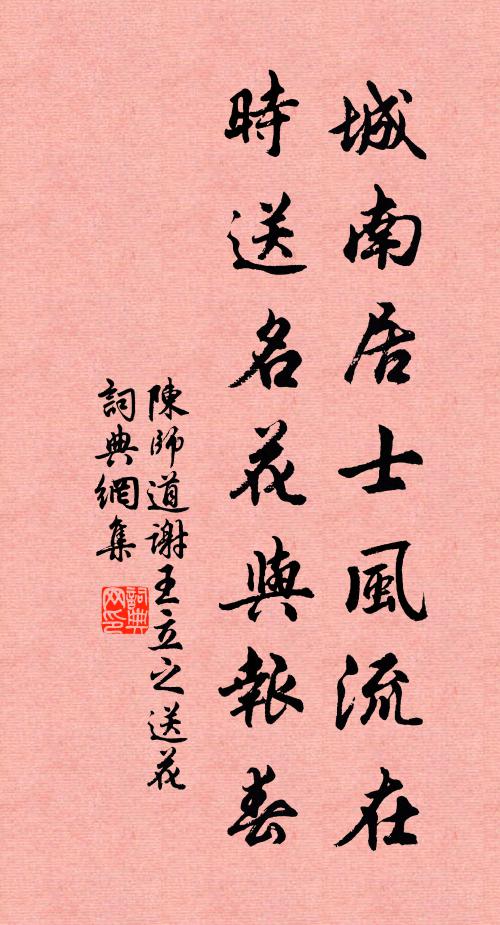 城南居士風流在
時送名花與報春
陳師道謝王立之送花
詞典網集
詞典网印